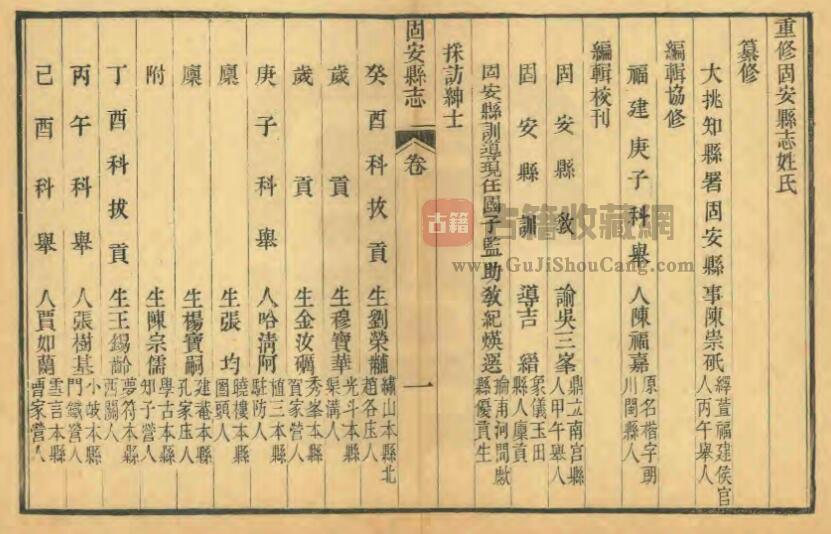 重修固安縣志姓氏
纂修
大挑知縣署固安縣事陳崇砥繹萱福建侯官人丙午舉人
編輯協修
福建庚子科舉人陳福嘉原名楷字朗川閩縣人
編輯校刊
固安縣教諭吳三峯鼎立南宮縣人甲午舉人
固安縣訓導吉縉象儀玉田縣人廩貢
固安縣訓導現任國子監助教紀煐選瑜甫河間獻縣優貢生
採訪紳士
固安縣志 卷 一
癸酉科拔貢生劉榮黼繡山本縣北趙各庄人
歲貢生穆寶華光斗本縣渠溝人
歲貢生金汝礪秀峯本縣賀家營人
庚子科舉人哈清阿植三本縣駐防人
廩生張均曉樓本縣圈頭人
廩生楊寶嗣建菴本縣孔家庄人
附生陳宗儒學古本縣知子營人
丁酉科拔貢生王錫齡夢符本縣西關人
丙午科舉人張樹基小岐本縣門鐵營人
己酉科舉人賈如蘭雲言本縣曹家營人
古籍
古籍收藏網
www.GuJiShouCang.com